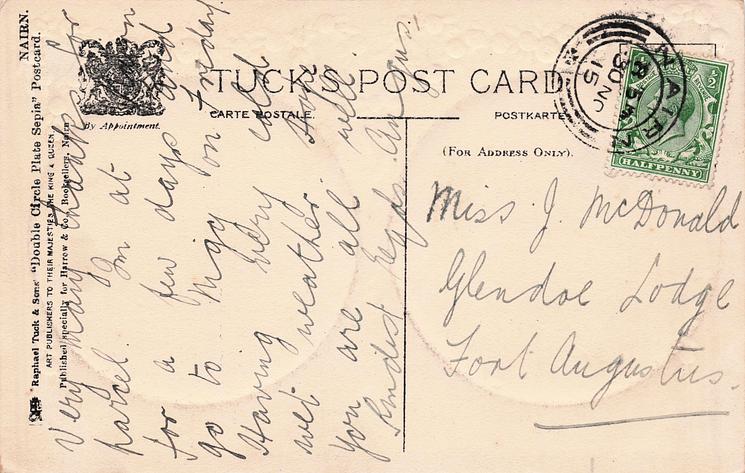 NAIRN.
Raphael Tuck & Sons' "Double Circle Plate Sepia" Postcard.
ART PUBLISHERS TO THEIR MAJESTIES THE KING & QUEEN.
Published specially for Harrow & Co., Booksellers, Nairn
By Appointment.
TUCK'S POST CARD
CARTE POSTALE.
POSTKARTE
(FOR ADDRESS ONLY).
NAIRN
30 NO
15
½
HALFPENNY
Very many thanks for
parcel. I'm at
for a few days and
go to on Friday
Having very cold
wet weather. Hope
you are all well.
Kindest regds. Angus.
Miss J. McDonald
Glendoe Lodge
Fort Augustus.